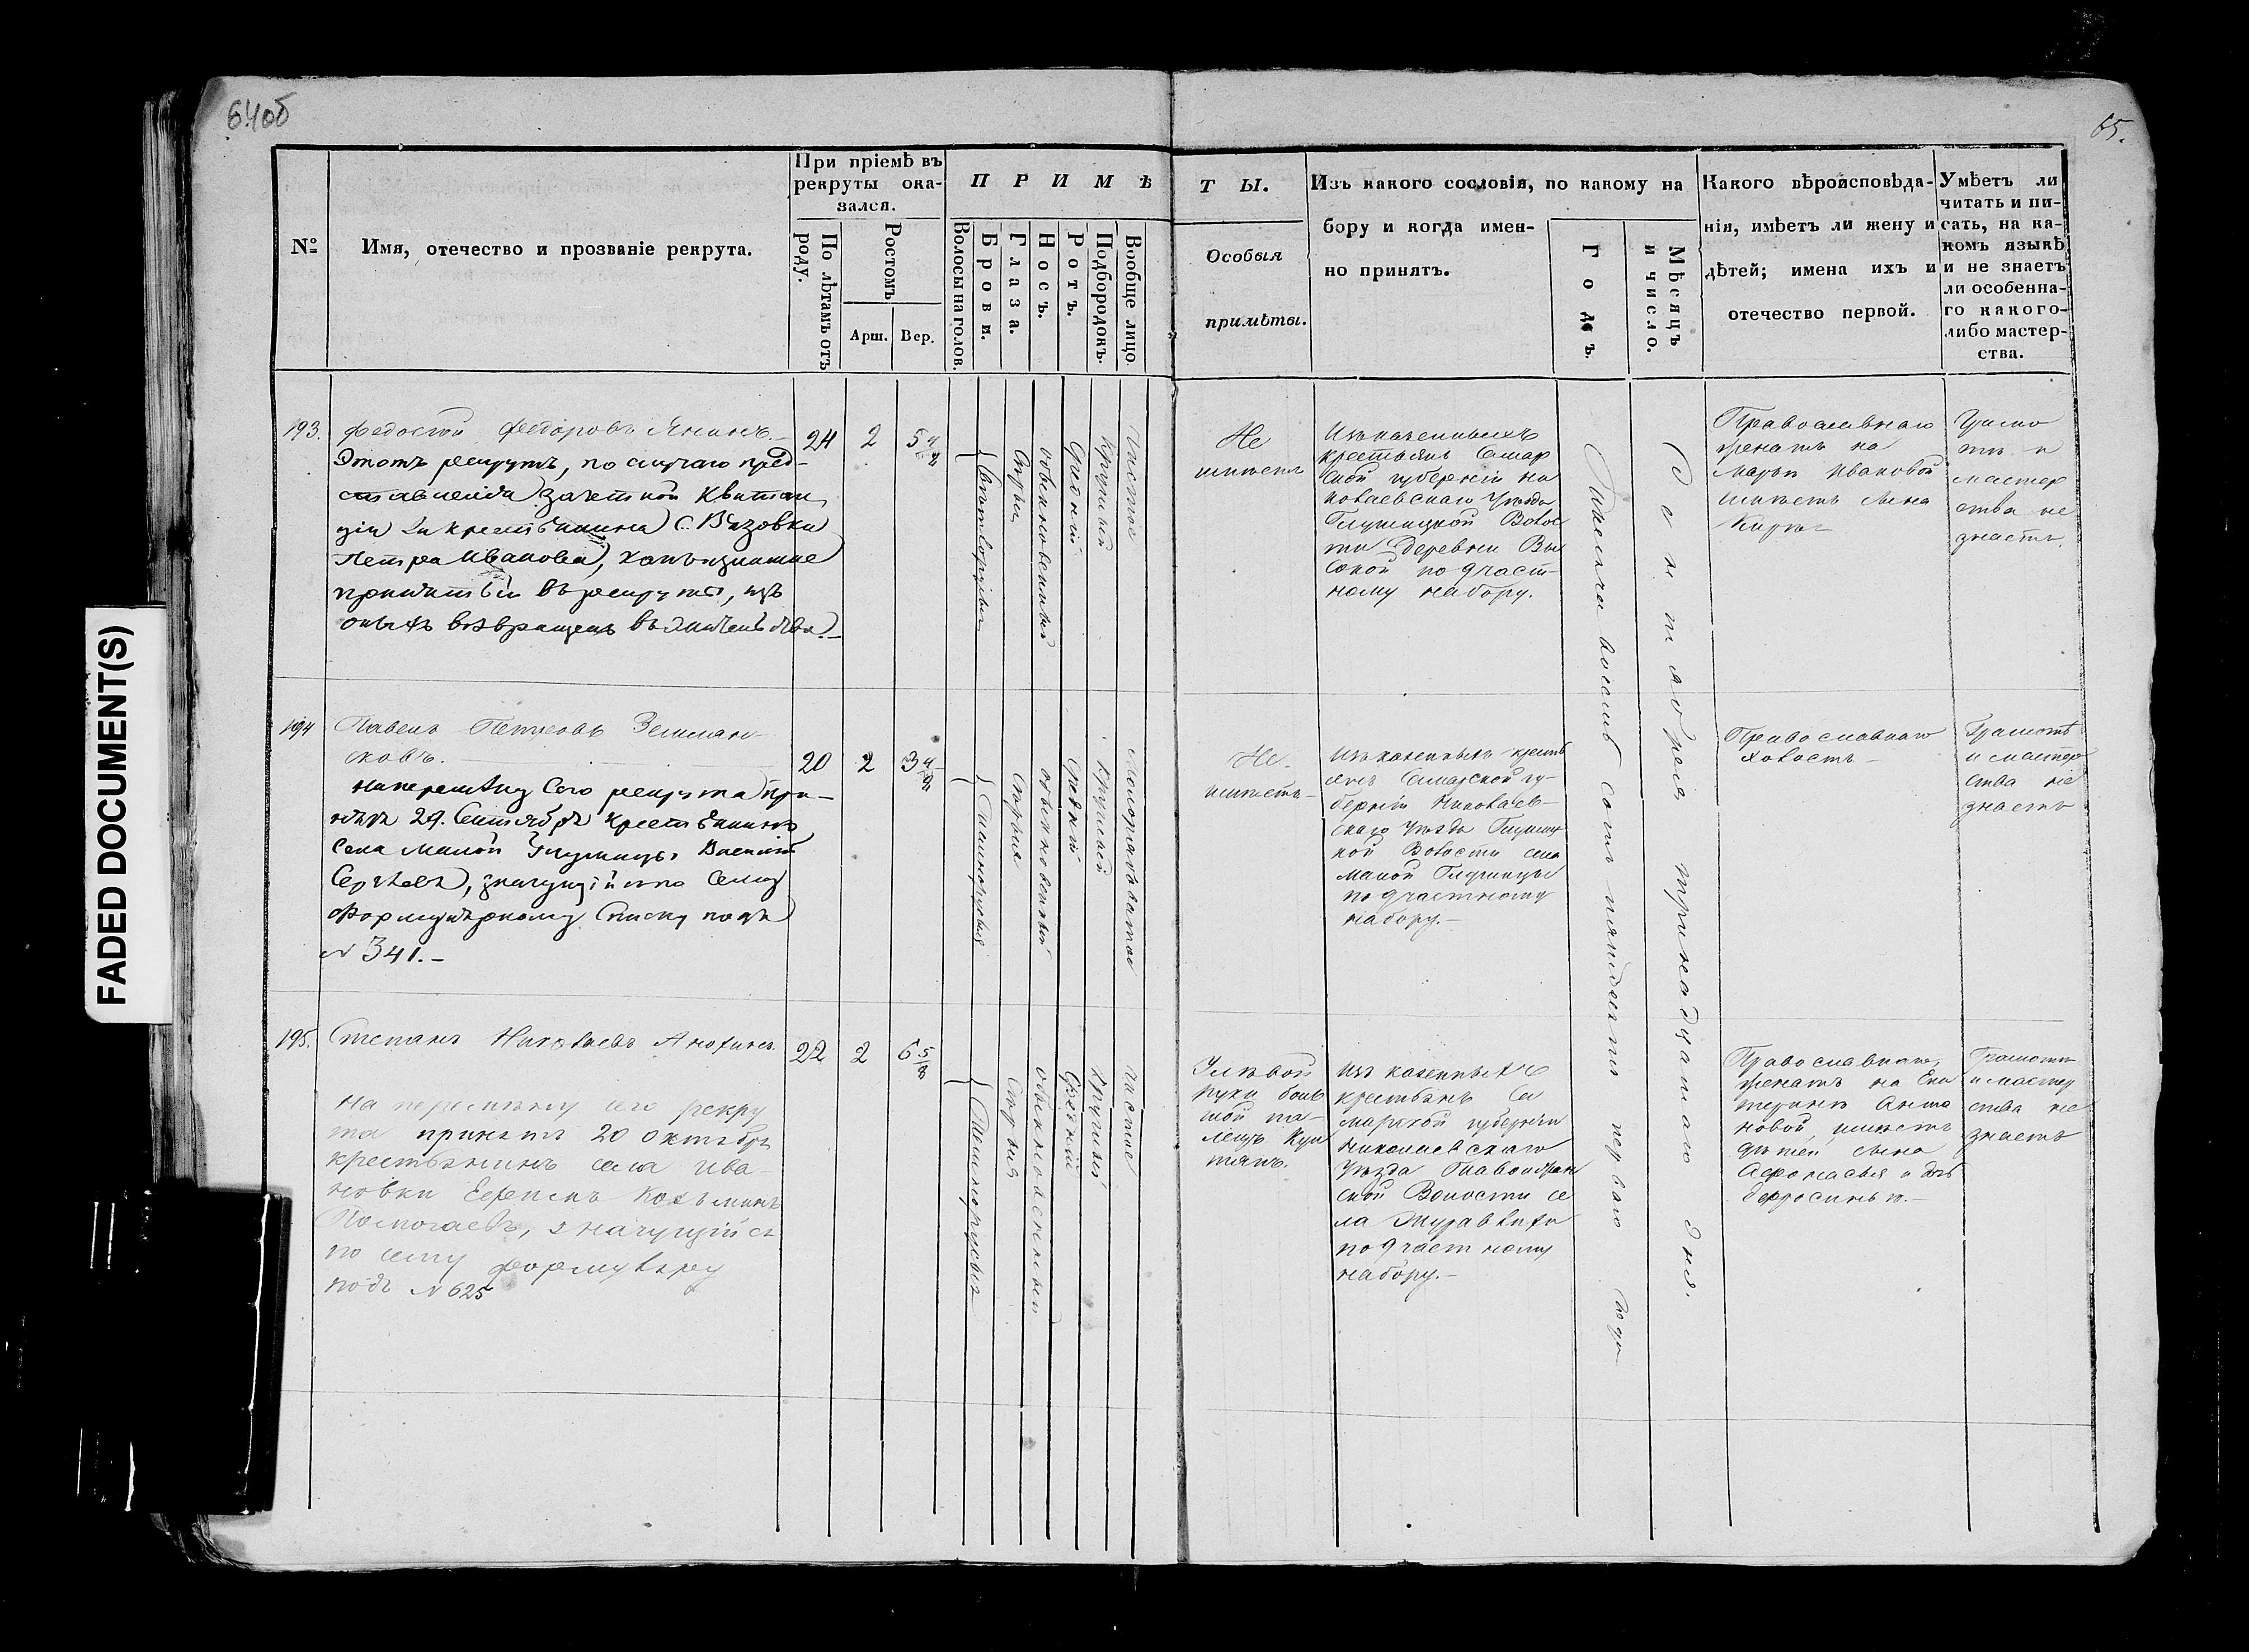 64об
65.
FADED DOCUMENT(S)
№
Имя, отечество и прозваніе рекрута.
При пріемѣ въ
рекруты ока-
зался.
По лѣтамъ отъ
роду.
Ростомъ
Арш.
Вер.
ПРИМѢ
Волосы на голов.
Брови.
Глаза.
Носъ.
Ротъ.
Подбородокъ.
Вообще лицо.
ТЫ.
Особыя
примѣты.
Изъ какого сословія, по какому на
бору и когда имен-
но принятъ.
Годъ.
Мѣсяцъ
и число.
Какого вѣроисповѣда-
нія, имѣетъ ли жену и
дѣтей; имена ихъ и
отечество первой.
Умѣетъ ли
читать и пи-
сать, на ка-
комъ языкѣ
и не знаетъ
ли особенна-
го какого-
либо мастер-
ства.
193.
Федосѣй Федоровъ Янинъ.
Этотъ рекрутъ, по случаю пред-
ставленія зачетной квитан
ціи за крестьянина С. Вязовки
Петра Иванова,
въ рекруты, изъ
оныхъ возвращенъ
24
2
5 4/8
Свѣтлорусыя
Сѣрыя
обыкновенный
Средній
Круглый
Чистое
Не
имѣетъ
Изъ казенныхъ
крестьянъ Самар
ской губерніи Ни
колаевскаго Уѣзда
Глушицкой Волос
ти деревни Вы
сокой по 9 част-
ному набору.
Православнаго
женатъ на
Марьѣ Ивановой
имѣетъ сына
Грамо
тѣ и
мастер
ства не
знаетъ.
194
Павелъ Петровъ Землян-
сковъ.
на перемѣну сего рекрута при-
нятъ 29. Сентября крестьянинъ
села Малой Глушицы Василій
Сергѣевъ, значущійся по сему
формулярному списку подъ
N 341.-
20
2
3 4/8
Темнорусыя
Сѣрые
обыкновенный
Средній
Круглый
Малорябоватое
Не
имѣетъ
Изъ казенныхъ кресть
янъ Самарской гу-
берніи Николаев-
скаго Уѣзда Глушиц
кой Волости села
Малой Глушицы
по 9 частному
набору.-
Православнаго
холостъ -
Грамотѣ
и мастер
ства не
знаетъ
195.
Степанъ Николаевъ Анохинъ
на перемѣну сего рекру
та принятъ 20 Октября
крестьянинъ села Ива-
новки Ефремъ Козьминъ
Помогаевъ, значущійся
по сему формуляру
подъ N 625
22
2
6 5/8
Темнорусыя
Сѣрыя
обыкновенный
Средній
Круглый
чистое
У лѣвой
руки боль
шой па-
лецъ
Изъ казенныхъ
крестьянъ Са
марской губерніи
Николаевскаго
Уѣзда
ской Волости се
ла Журавлихи
по 9 частному
набору.-
Православнаго,
женатъ на Ека
теринѣ Анто
новой, имѣетъ
дѣтей сына
Афонасья и дочь
Ефросинью.-
Грамотѣ
и мастер
ства не
знаетъ
Тысяча восемь сотъ пятьдесятъ перваго года
Сентября тринадцатаго дня.